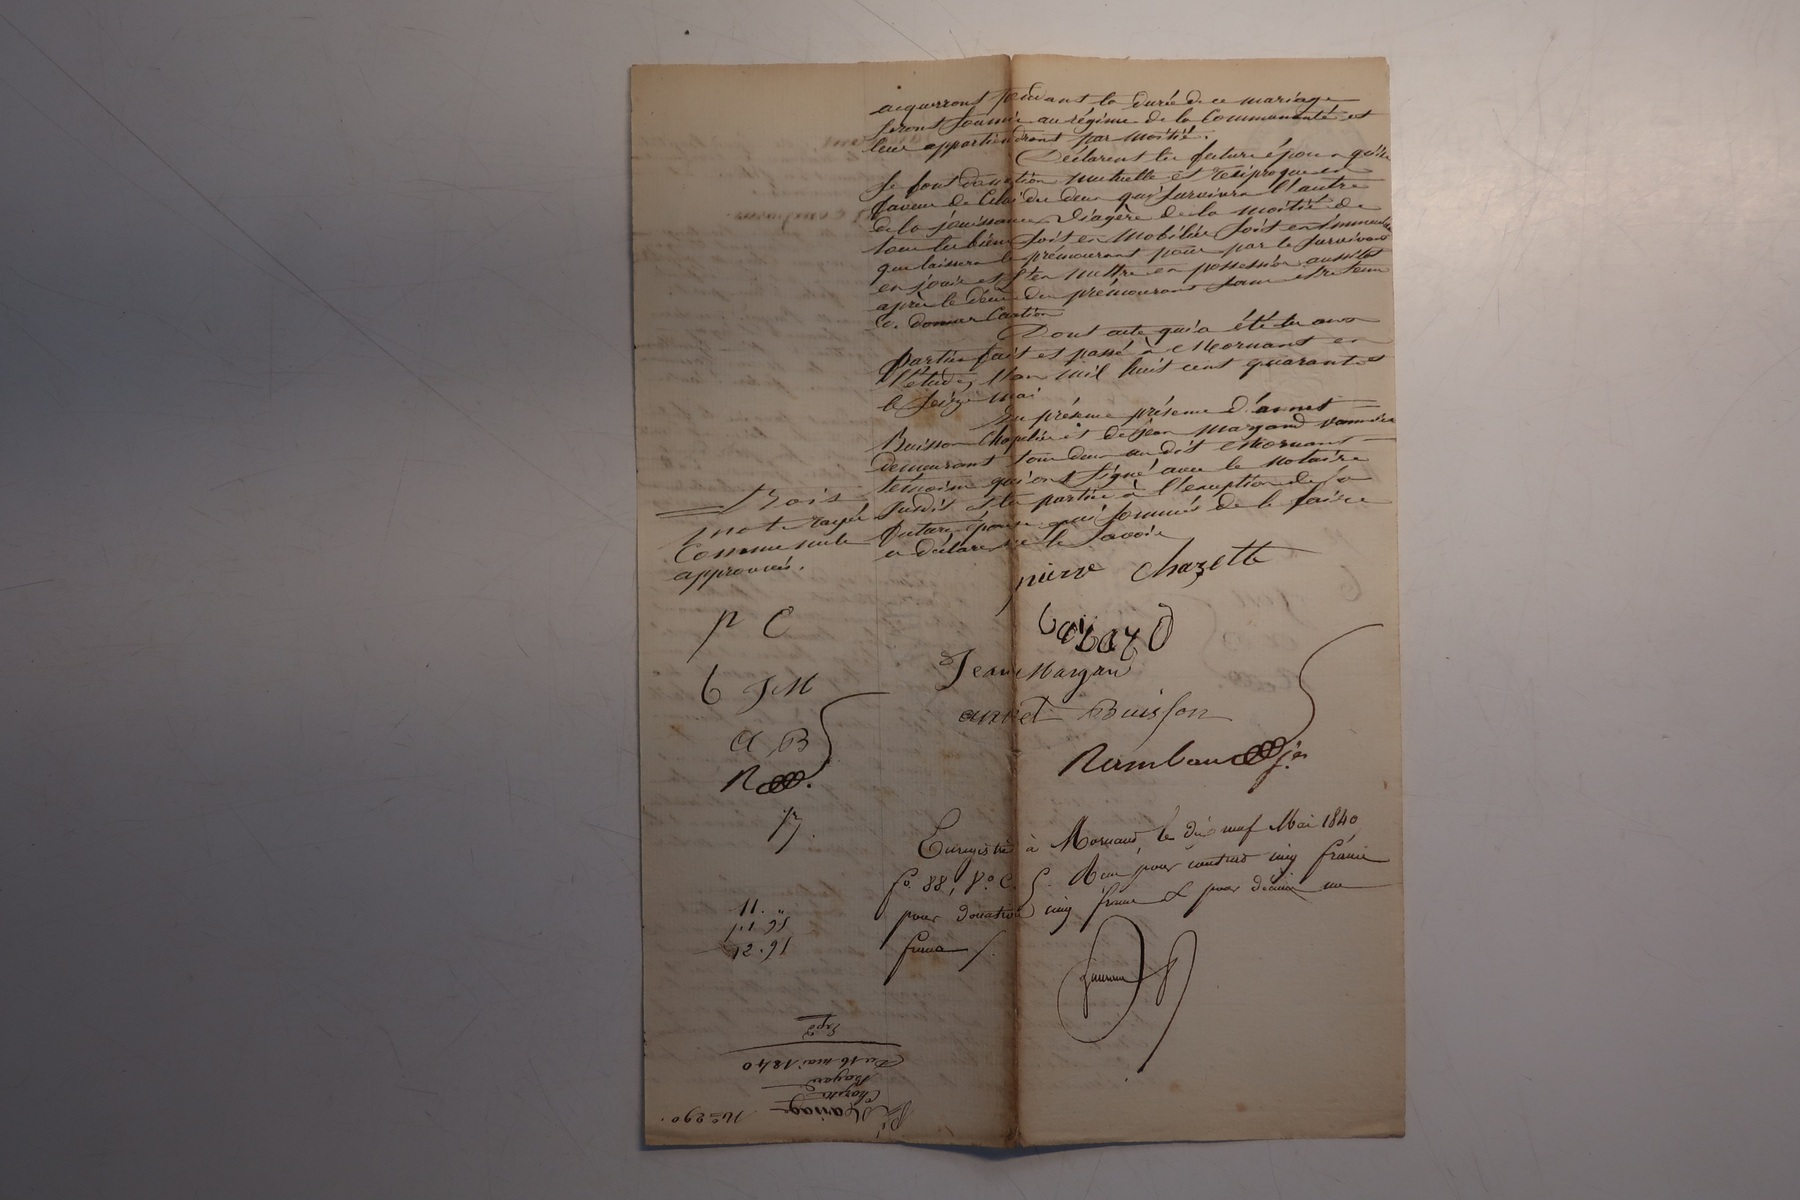 acquerront pendant la durée de ce mariage
seront soumis au régime de la Communauté et
leur appartiendront par moitié.
Déclarent les futurs époux qu'ils
se font donation mutuelle et réciproque en
faveur de Celui des deux qui survivra l'autre
de la jouissance viagère de la moitié de
tous les biens soit en Mobilier soit en immeubles
que laissera le prémourant pour par le survivant
en jouir et s'en mettre en possession aussitôt
après le décès du prémourant sans être tenu
de donner Caution
Dont acte qui a été lu aux
parties fait et passé à Mornant en
l'étude, l'an mil huit cent quarante et
le seize mai
En présence présence d'annet
Buisson Chapelier et de Jean Margand
demeurant tous deux au dit Mornant
témoins qui ont signé avec le notaire
susdit et les parties à l'exception de la
future épouse qui sommée de le faire
a déclaré ne le savoir
Trois
mots rayés
Comme nuls
approuvés.
pierre chazette
p C
bayard
Jean Margand
b J M
annet Buisson
a B
Rambaud jne
R
Enregistré à Mornant, le dix neuf Mai 1840
fo. 88, Vo. C. 5. Reçu pour contrat cinq francs
pour donation cinq francs et pour décime un
franc
11. "
1.95
12.95
No 290.
Mariage
Chazette
Bayard
Du 16 mai 1840
Expé